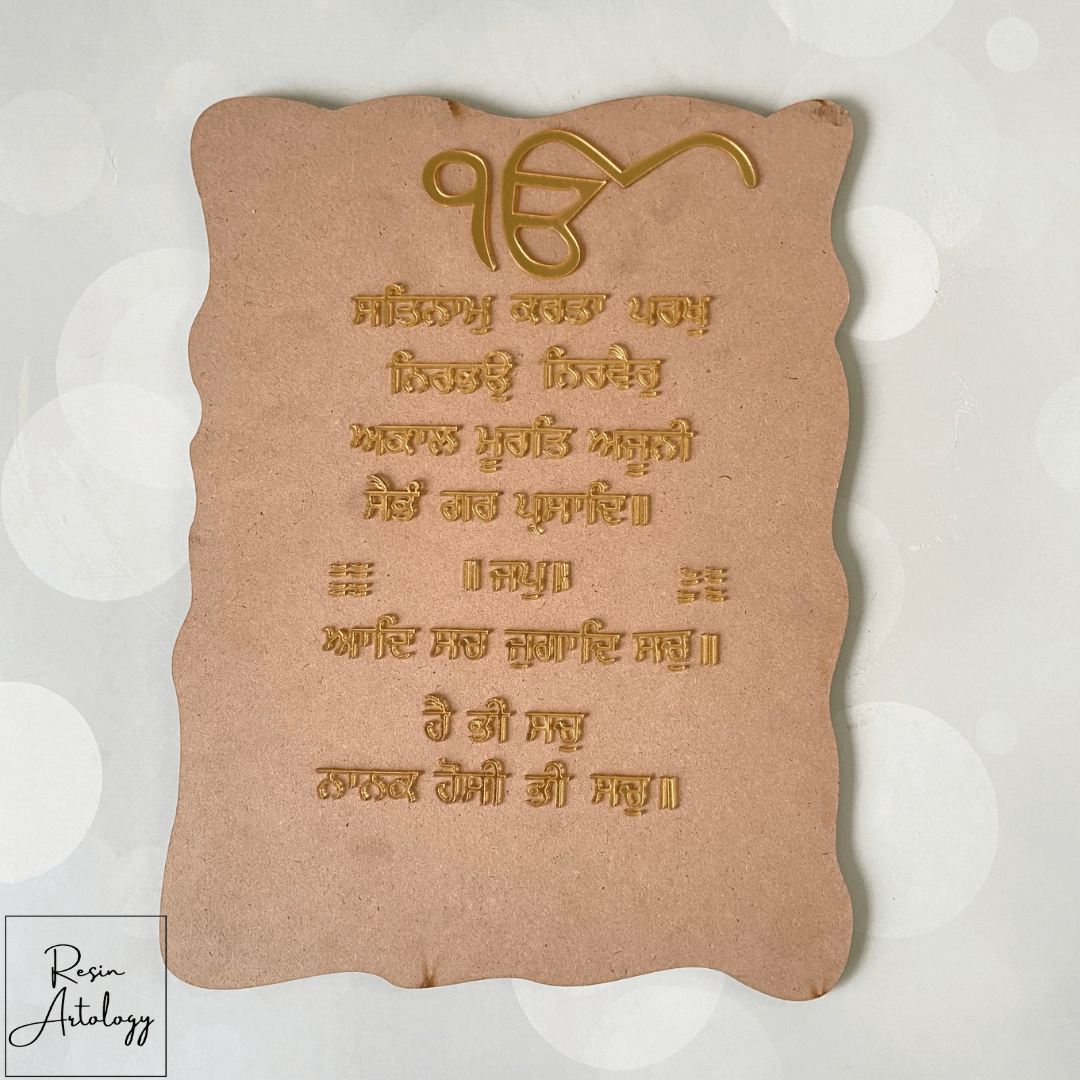 ੴ
ਸਤਿਨਾਮੁ ਕਰਤਾ ਪਰਖੁ
ਨਿਰਭਉ ਨਿਰਵੈਰੁ
ਅਕਾਲ ਮੂਰਤਿ ਅਜੂਨੀ
ਸੈਭੰ ਗਰ ਪ੍ਰਸਾਦਿ॥
॥ਜਪੁ॥
ਆਦਿ ਸਚ ਜੁਗਾਦਿ ਸਚੁ॥
ਹੈ ਭੀ ਸਚੁ
ਨਾਨਕ ਹੋਸੀ ਭੀ ਸਚੁ॥
Resin
Artology